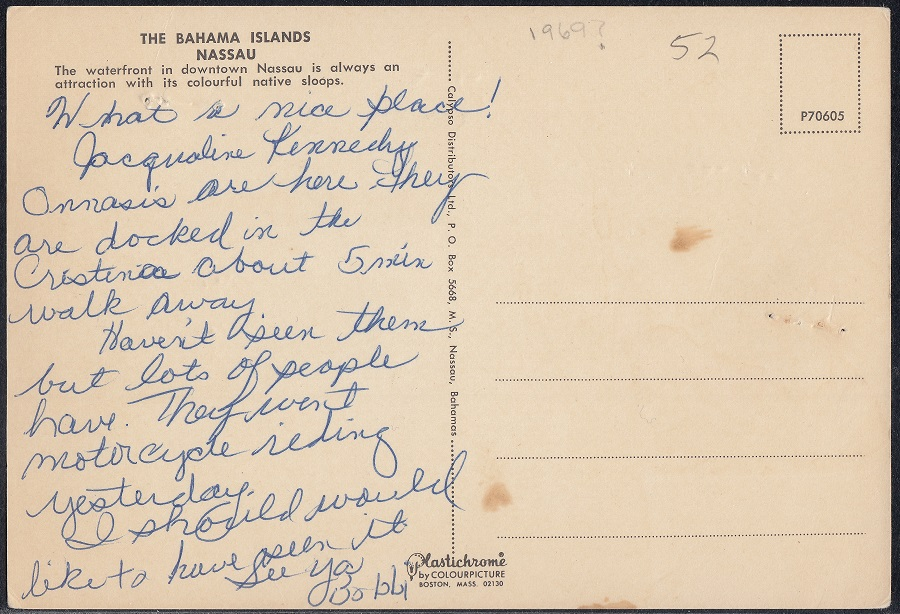 THE BAHAMA ISLANDS
NASSAU
The waterfront in downtown Nassau is always an
attraction with its colourful native sloops.
What a nice place!
Jacqualine Kennedy
Onnasis are here They
are docked in the
Cristina about 5 min
walk away
Haven't seen them
but lots of people
have. They went
motorcycle riding
yesterday.
I should would
like to have seen it
See ya
Bobbi
Calypso Distributors Ltd., P. O. Box 5668, M. S., Nassau, Bahamas
1969?
52
P70605
Plastichrome®
by COLOURPICTURE
BOSTON, MASS. 02130